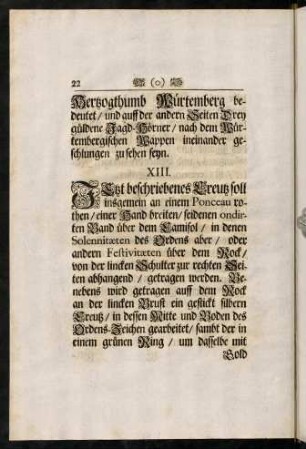 22 (o)
Hertzogthumb Würtemberg be-
deutet / und auff der andern Seiten Drey
güldene Jagd-Hörner / nach dem Wür-
tembergischen Wappen ineinander ge-
schlungen zu sehen seyn.
XIII.
JEtzt beschriebenes Creutz soll
insgemein an einem Ponceau ro-
then / einer Hand breiten / seidenen ondir-
ten Band über dem Camisol / in denen
Solennitæten des Ordens aber / oder
andern Festivitæten über dem Rock /
von der lincken Schulter zur rechten Sei-
ten abhangend / getragen werden. Be-
nebens wird getragen auff dem Rock
an der lincken Brust ein gestickt silbern
Creutz / in dessen Mitte und Boden des
Ordens-Zeichen gearbeitet / sambt der in
einem grünen Ring / um dasselbe mit
Gold